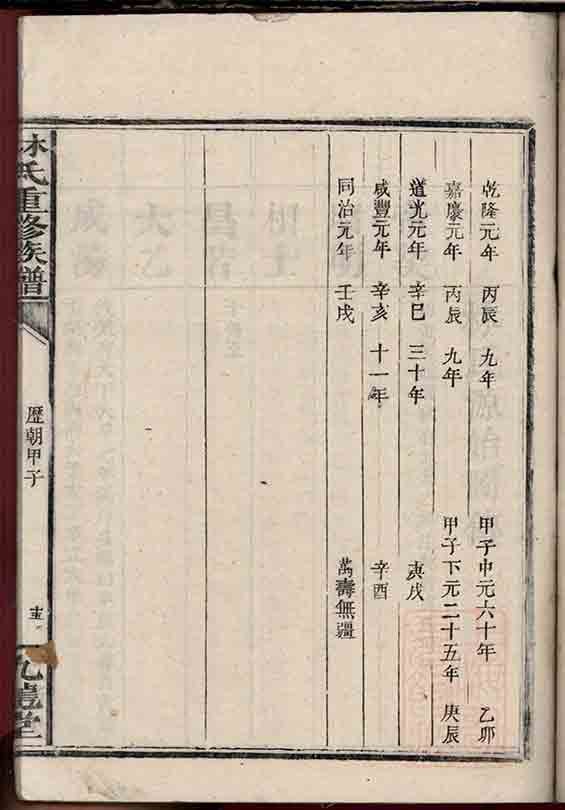 乾隆元年 丙辰 九年 甲子中元六十年 乙卯
嘉慶元年 丙辰 九年 甲子下元二十五年 庚辰
道光元年 辛巳 三十年 庚戌
咸豐元年 辛亥 十一年 辛酉
同治元年 壬戌 萬壽無疆
林氏重修族譜
歷朝甲子
九龍堂